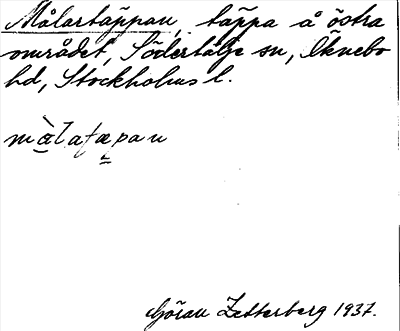 Målartäppan, täppa å östra
området, Södertälje sn, Öknebo
hd, Stockholms l.
màlatæpan
Göran Zetterberg 1937.